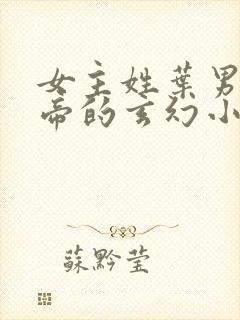 女主姓葉男
帝的玄幻小
蘇黔瑩